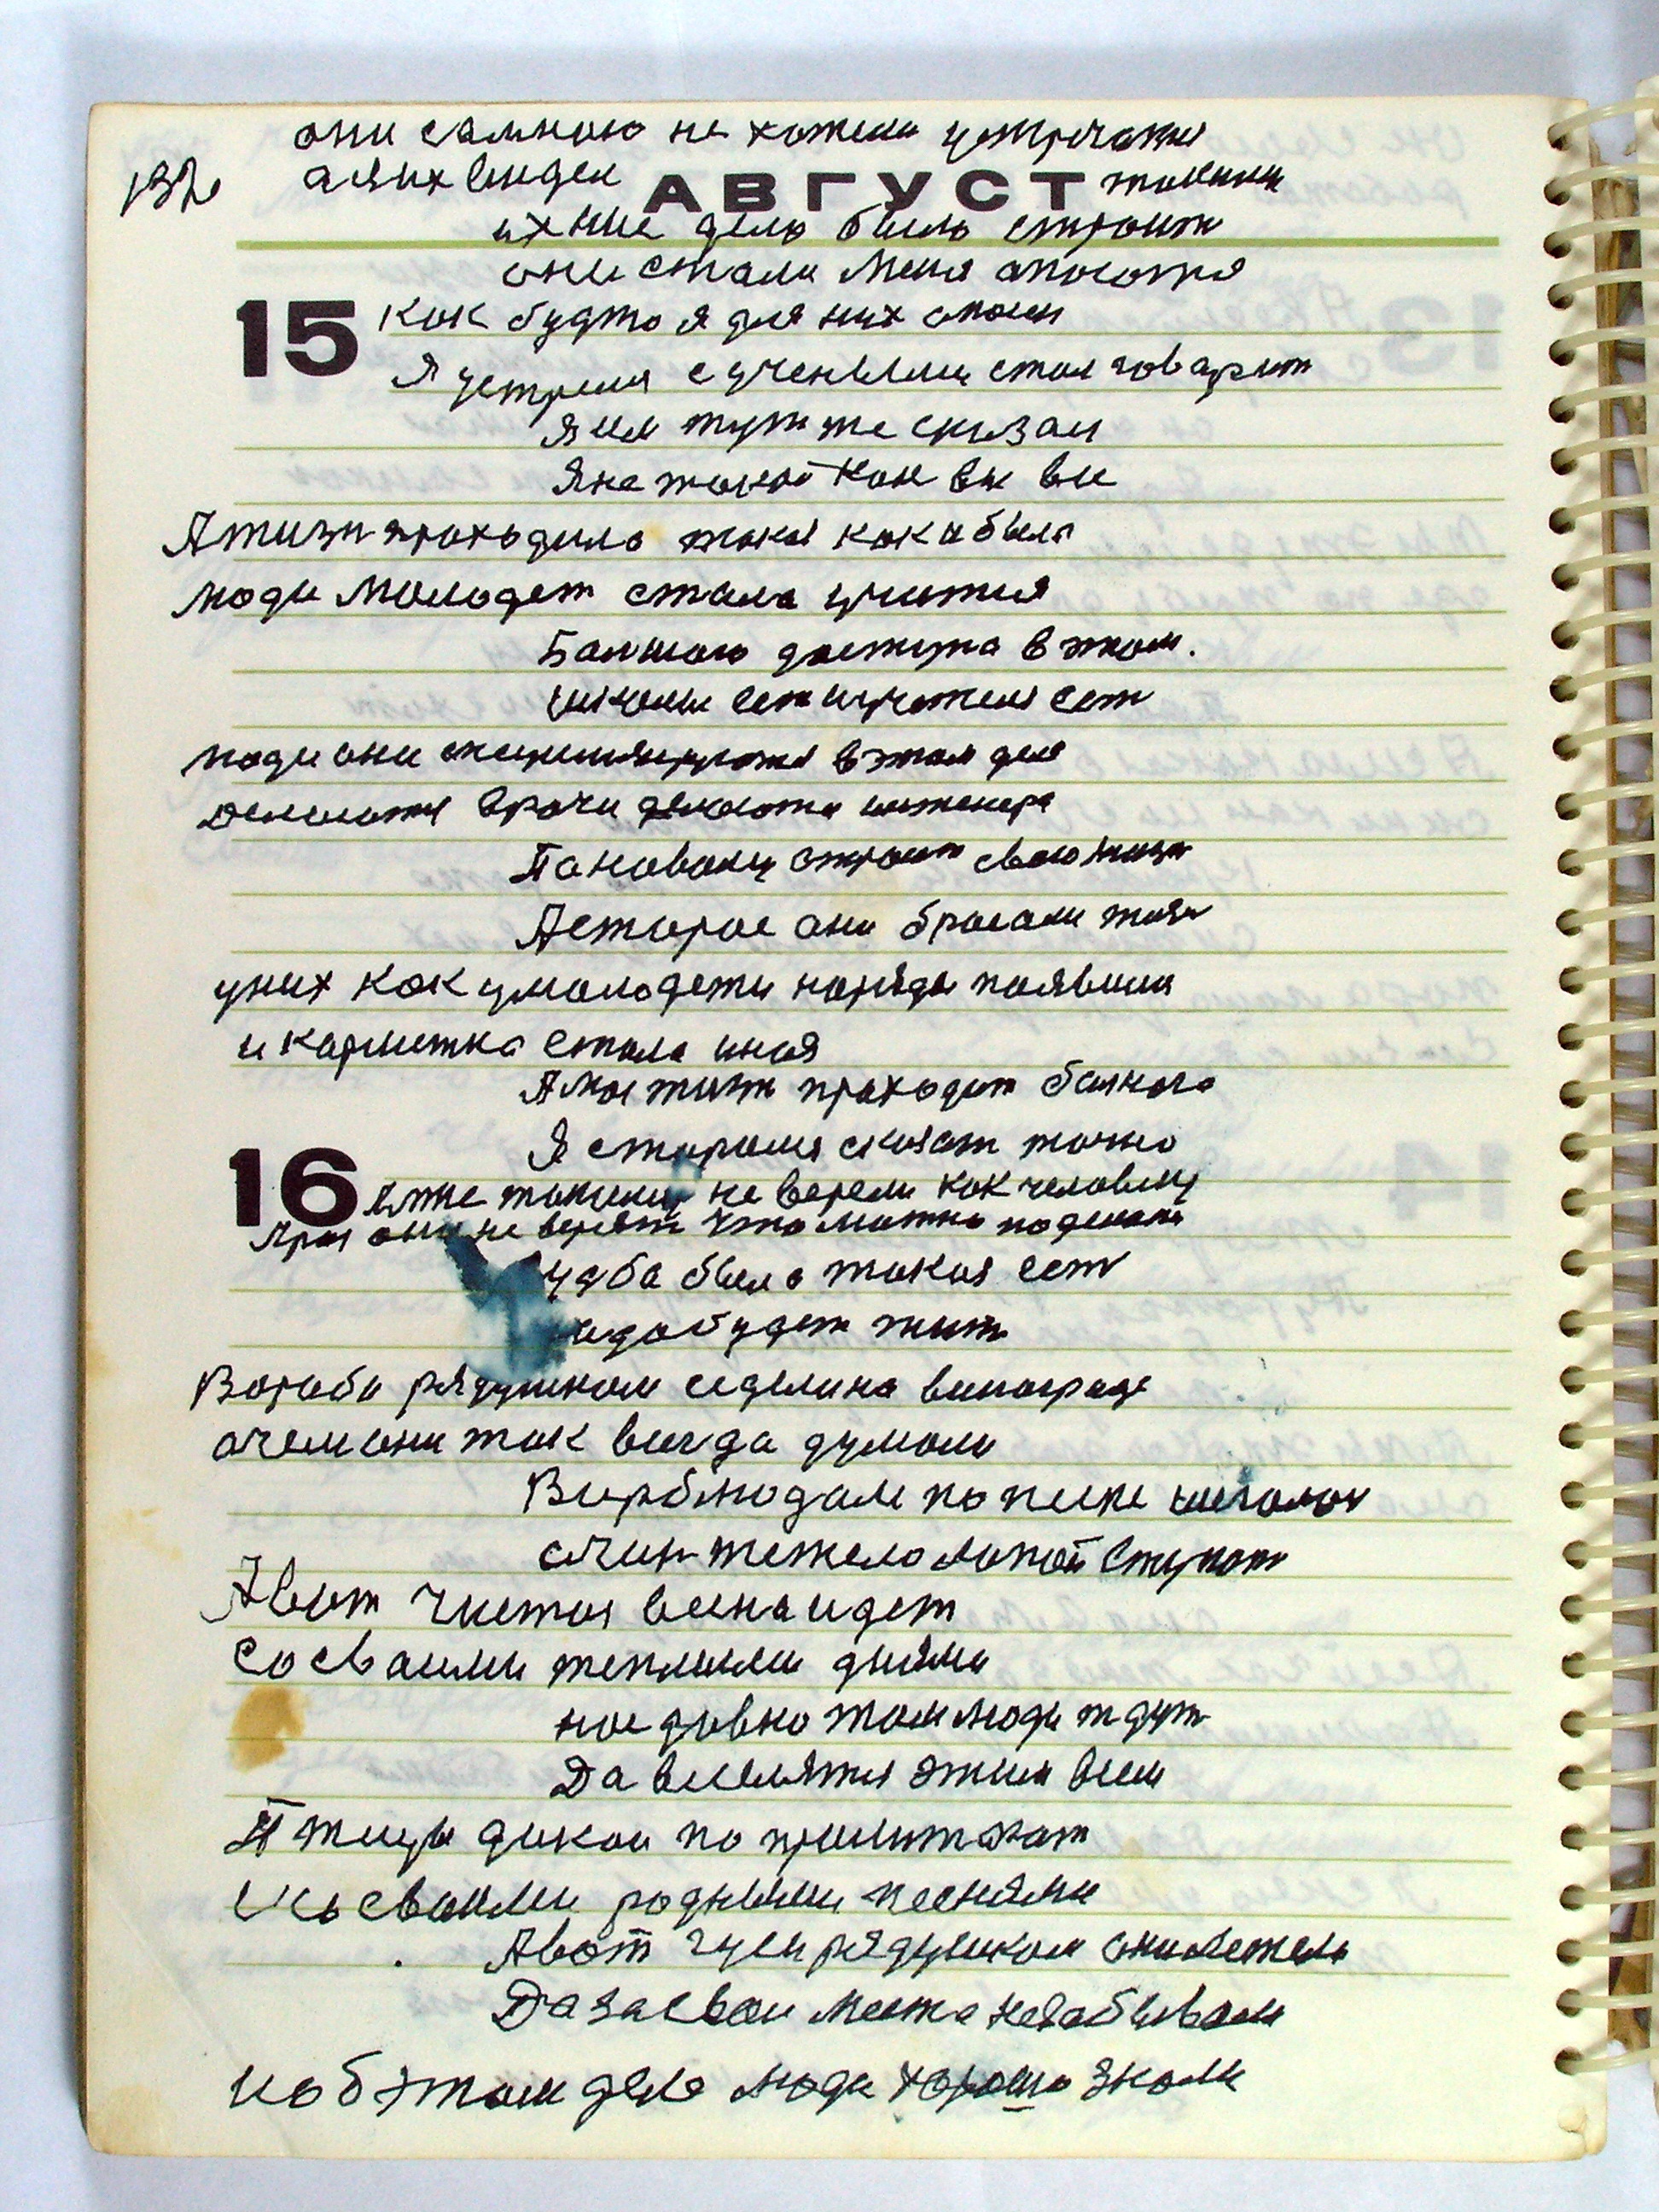 они самною не хотели устречатся
132
а я их видел АВГУСТ такими
ихние дело было строит
они стали меня опасатся
15 как будто я для них опасен
Я устрелся с учеными стал говарит
Я им тут же сказал
Я не такой как вы все
А жизн праходила такая как и была
люди молодеж стала учится
Балшого достига в этом.
школы ест учителя ест
люди они специализируются в этом деле
Делаются врачи делаются инженера
Пановому строит свою жизн
А старое они бросали
у них как у молодежи наряды появился
и картинка стала иная
А моя жизн праходит балного
Я старался сказат точно
16 мне такому не верели как человеку
они не верят что можно поделат
была такая ест
надо будет жить
Вораби рядушком сиделина винограде
а чем они так всегда думали
Вирблюдам по пески
тежело лапой ступат
А вот чистая весна идет
Со своими теплыми днями
нас давно там люди ждут
Да веселятся этим всем
Птицы дикаи по прилитают
Исо своими родными песнями
А вот гуси рядушком они летели
Да за свои места незабывали
и об этом деле люди хорошо знали